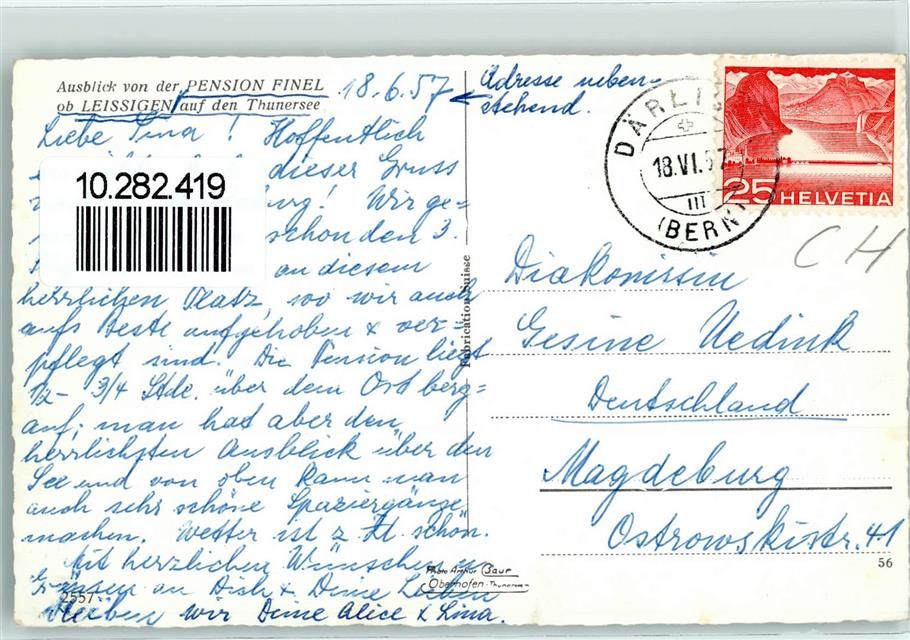 Ausblick von der PENSION FINEL
ob LEISSIGEN auf den Thunersee
18.6.57
Adresse neben-
stehend.
Liebe Hoffentlich
dieser Gruss
Wir ge=
schon den 3.
an diesem
herrlichen Platz, wo wir auch
aufs beste aufgehoben & ver=
pflegt sind. Die Pension liegt
1/2 - 3/4 Stde. über dem Ort berg=
auf; man hat aber den
herrlichsten Ausblick über den
See und von oben kann man
auch sehr schöne Spaziergänge
machen. Wetter ist z. Zt. schön.
Mit herzlichen Wünschen u.
Grüssen an Dich & Deine Lieben
bleiben wir Deine Alice & Lina.
10.282.419
2557
Fabrication Suisse
Photo Arthur Baur
Oberhofen - Thunersee
DÄRLI
18.VI.57
III
(BERN)
25 HELVETIA
CH
Diakonissin
Gesine Uedink
Deutschland
Magdeburg
Ostrowskistr. 41
56